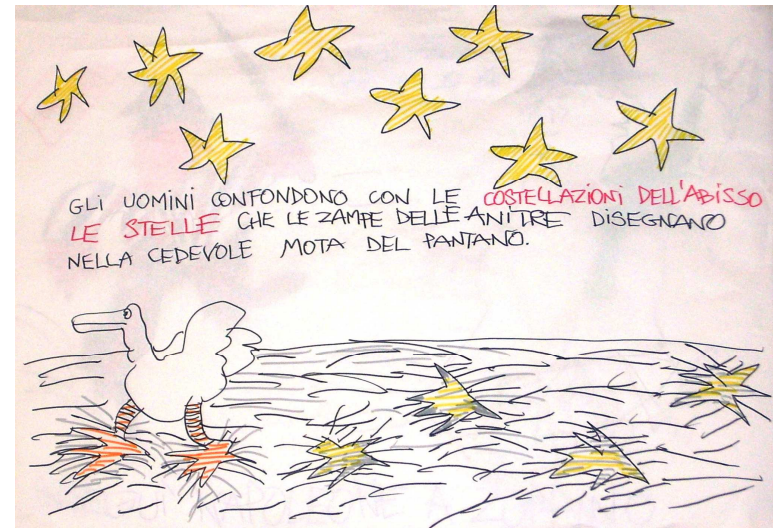 GLI UOMINI CONFONDONO CON LE COSTELLAZIONI DELL'ABISSO
LE STELLE CHE LE ZAMPE DELLE ANITRE DISEGNANO
NELLA CEDEVOLE MOTA DEL PANTANO.